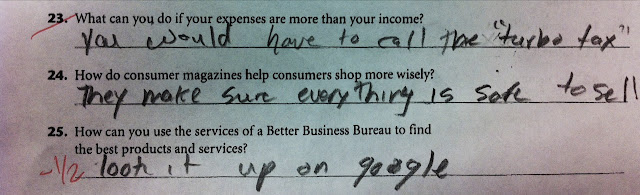 23. What can you do if your expenses are more than your income?
You would have to call the "turbo tax"
24. How do consumer magazines help consumers shop more wisely?
They make sure everything is safe to sell
25. How can you use the services of a Better Business Bureau to find
the best products and services?
-1/2 look it up on google